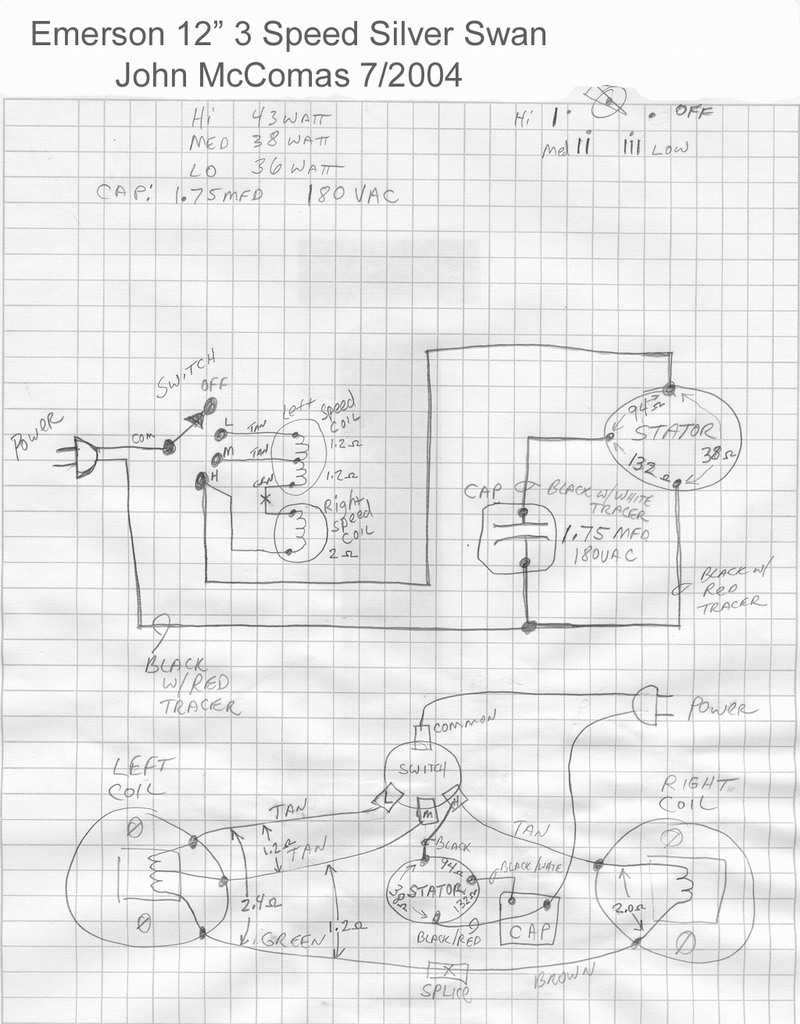 Emerson 12” 3 Speed Silver Swan
John McComas 7/2004
Hi 43 WATT
MED 38 WATT
LO 36 WATT
CAP: 1.75 MFD 180 VAC
Hi I OFF
Med ii iii LOW
SWITCH
OFF
POWER
COM
L
TAN
M
TAN
H
GRN
Left Speed
COIL
1.2Ω
1.2Ω
Right
Speed
COIL
2 Ω
94Ω
STATOR
132Ω
38Ω
CAP
BLACK W/WHITE
TRACER
1.75 MFD
180VAC
BLACK W/
Red
TRACER
BLACK
W/RED
TRACER
COMMON
POWER
SWITCH
LEFT
COIL
L
M
H
RIGHT
COIL
TAN
TAN
1.2Ω
TAN
BLACK
94Ω
STATOR
38Ω
132Ω
BLACK/WHITE
2.4Ω
1.2Ω
2.0Ω
GREEN
BLACK/RED
CAP
X
SPLICE
BROWN